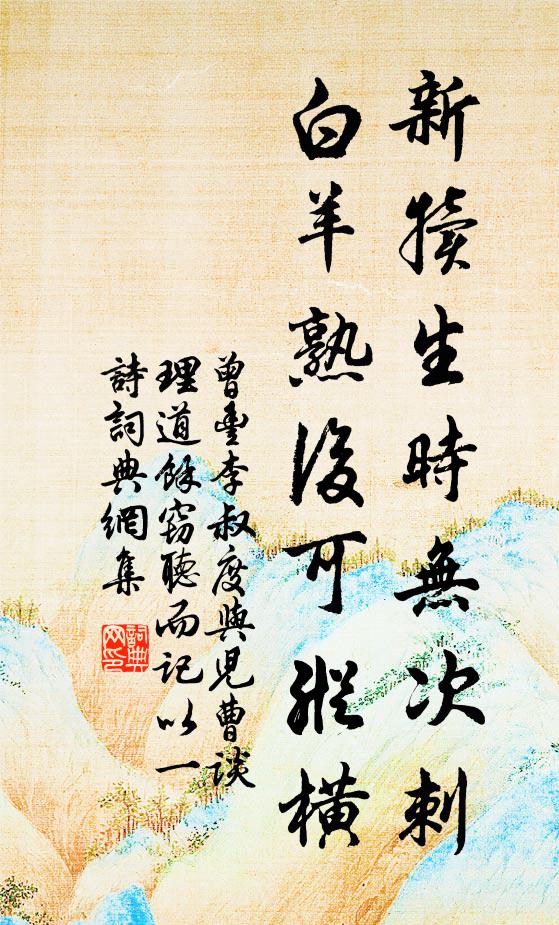 新犢生時無次刺
白羊熟後可縱橫
曾豐李叔度與兒曹談
理道餘竊聽而記以一
詩詞典網集
詞典
网印